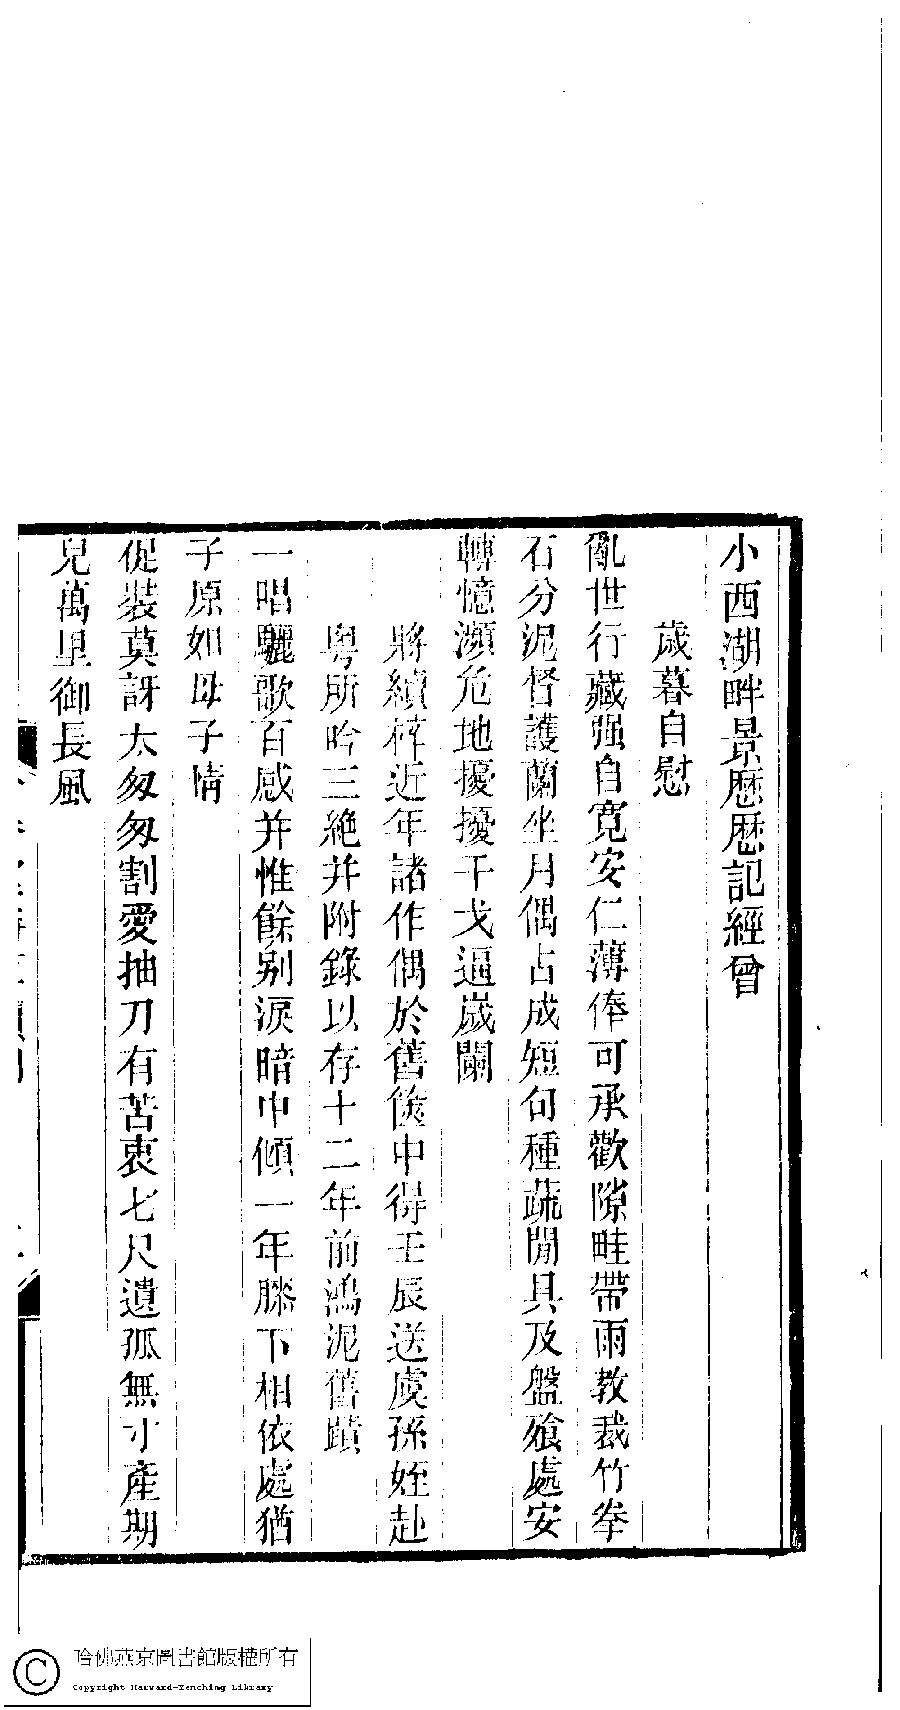 小西湖畔景歷歷記經曾
歲暮自慰
亂世行藏强自寬安仁薄俸可承歡隙畦帶雨教栽竹拳
石分泥督護蘭坐月偶占成短句種蔬閒具及盤飱處安
轉憶瀕危地擾擾干戈逼歲闌
將續梓近年諸作偶於舊篋中得壬辰送虞孫姪赴
粤所吟三絶并附錄以存十二年前鴻泥舊蹟
一唱驪歌百感并惟餘别淚暗中傾一年膝下相依處猶
子原如母子情
促裝莫訝太匆匆割愛抽刀有苦衷七尺遺孤無寸產期
兒萬里御長風
哈佛燕京圖書館版權所有
Copyright Harvard-Yenching Library